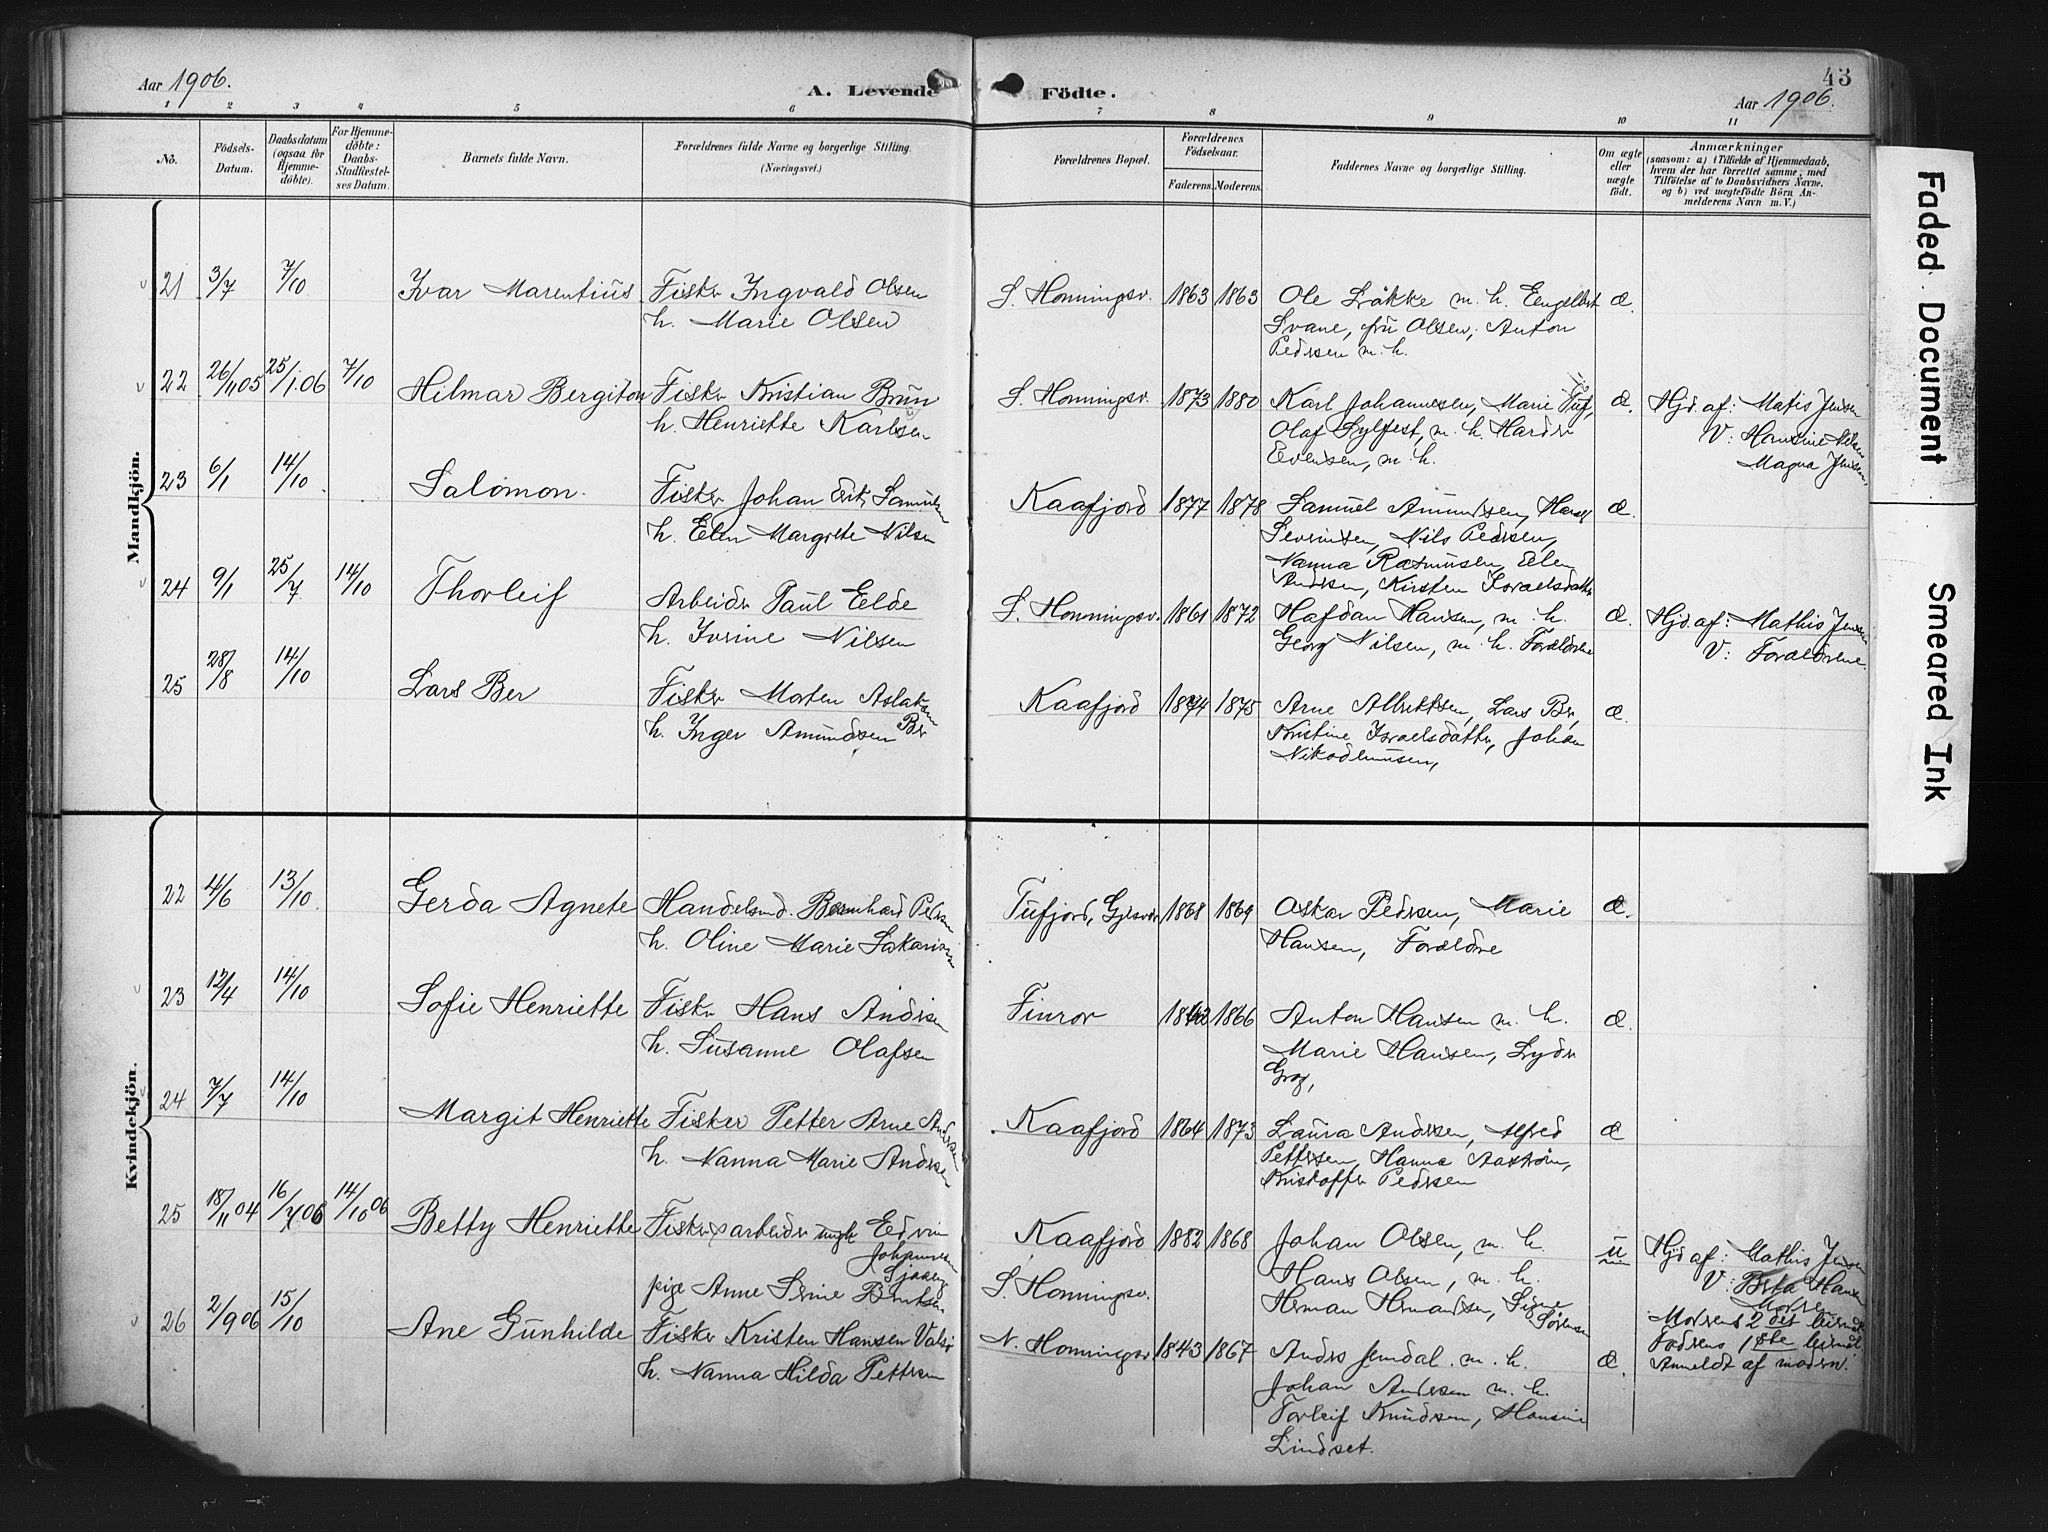 Aar 1906.
A. Levende Födte.
43
Aar 1906.
1 2 3 4 5 6 7 8 9 10 11
No.
Födsels-Datum.
Daabsdatum (ogsaa for Hjemme-döbte).
For Hjemme-döbte: Daabs-Stadfæstel-ses Datum.
Barnets fulde Navn.
Forældrenes fulde Navne og borgerlige Stilling. (Næringsvei.)
Forældrenes Bopæl.
Forældrenes Födselsaar.
Faderens. Moderens.
Faddernes Navne og borgerlige Stilling.
Om ægte eller uægte födt.
Anmærkninger
(saasom: a) i Tilfælde af Hjemmedaab, hvem der har forrettet samme, med Tilföielse af to Daabsvidners Navne, og b) ved uægtefödte Börn Anmelderens Navn m. V.)
Mandkjön.
21 3/7 7/10 Ivar Marentius Fisker Ingvald Olsen S. Honningsv. 1863 1863 Ole Løkke m. h. Eengelbrt æ.
h. Marie Olsen Svane, fru Olsen, Anton
Pedersen m. h.
22 26/11 05 25/1.06 7/10 Hilmar Bergiton Fisker Kristian Brun S. Honningsv. 1873 1880 Karl Johannesen, Marie Tuf, æ. Hjd. af: Matis Jensen
h. Henriette Karlsen Olaf Sylfest, m. h. Harder V: Hansine
Evensen, m. h. Magna Jensen
23 6/1 14/10 Salomon. Fisker Johan Erik Samuelsen Kaafjord 1877 1878 Samuel Amundsen, Hans æ.
h. Elen Margrete Nilsen Severinsen, Nils Pedersen,
Nanna Rasmusen, Elen
Andersen, Kirsten Israelsdatter
24 9/1 25/7 14/10 Thorleif Arbeider Paul Eide S. Honningsv. 1861 1872 Hafdan Hansen, m. h. æ. Hjd. af: Mathis Jensen
h. Iverine Nilsen Georg Nilsen, m. h. Forældrene V: Forældrene.
25 28/8 14/10 Lars Ber Fisker Morten Aslaksen Ber Kaafjord 1874 1875 Arne Albrektsen, Lars Ber, æ.
h. Inger Amundsen Kristine Israelsdatter, Johan
Nikodemusen,
Kvindekjön.
22 4/6 13/10 Gerda Agnete Handelsmd. Bernhard Pedersen Tufjord, Gjesvær 1868 1869 Oskar Pedersen, Marie æ.
h. Oline Marie Sakariasen Hansen, Forældre
23 12/4 14/10 Sofie Henriette Fisker Hans Andersen Finrov 1866 Anton Hansen m. h. æ.
h. Susanne Olafsen Marie Hansen, Lyder
Grog,
24 7/7 14/10 Margit Henriette Fisker Petter Arne Andersen Kaafjord 1864 1873 Laura Andersen, Alfred æ
h. Nanna Marie Andersen Pettersen, Hanna Aastrøm,
Kristoffer Pedersen
25 18/11 04 16/7 06 14/10 06 Betty Henriette Fiskerarbeider ungk Edvin Kaafjord 1882 1868 Johan Olsen, m. h. u Hjd af: Mathis Jensen
Johannesen Hans Olsen, m. h. V: Berta Hansen
pige Anne Serine Bentsen S. Honningsv. Herman Hermandsen, Signe Sørensen Moren
Morens 2det leiermaal
Faderens 1ste leiermaal.
Anmeldt af moderen.
26 2/9 06 15/10 Ane Gunhilde Fisker Kristen Hansen N. Honningsv 1843 1867 Anders Jemdal m. h. æ.
h. Nanna Hilda Pettersen Johan Andersen m. h.
Torleif Knudsen, Hansine
Lindset.
Faded Document
Smeared Ink